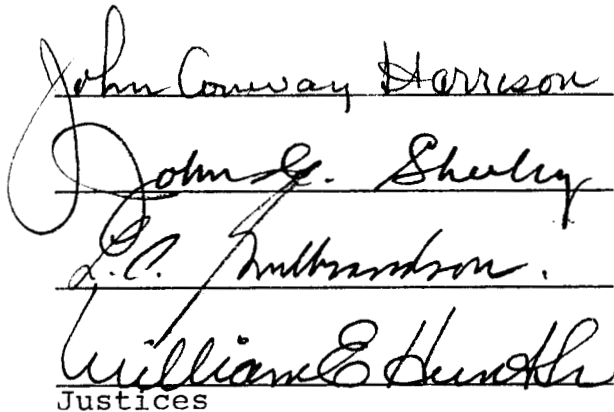 John Conway Harrison
John C. Sheehy
L.C. Gulbrandson.
William E Hunt Sr
Justices